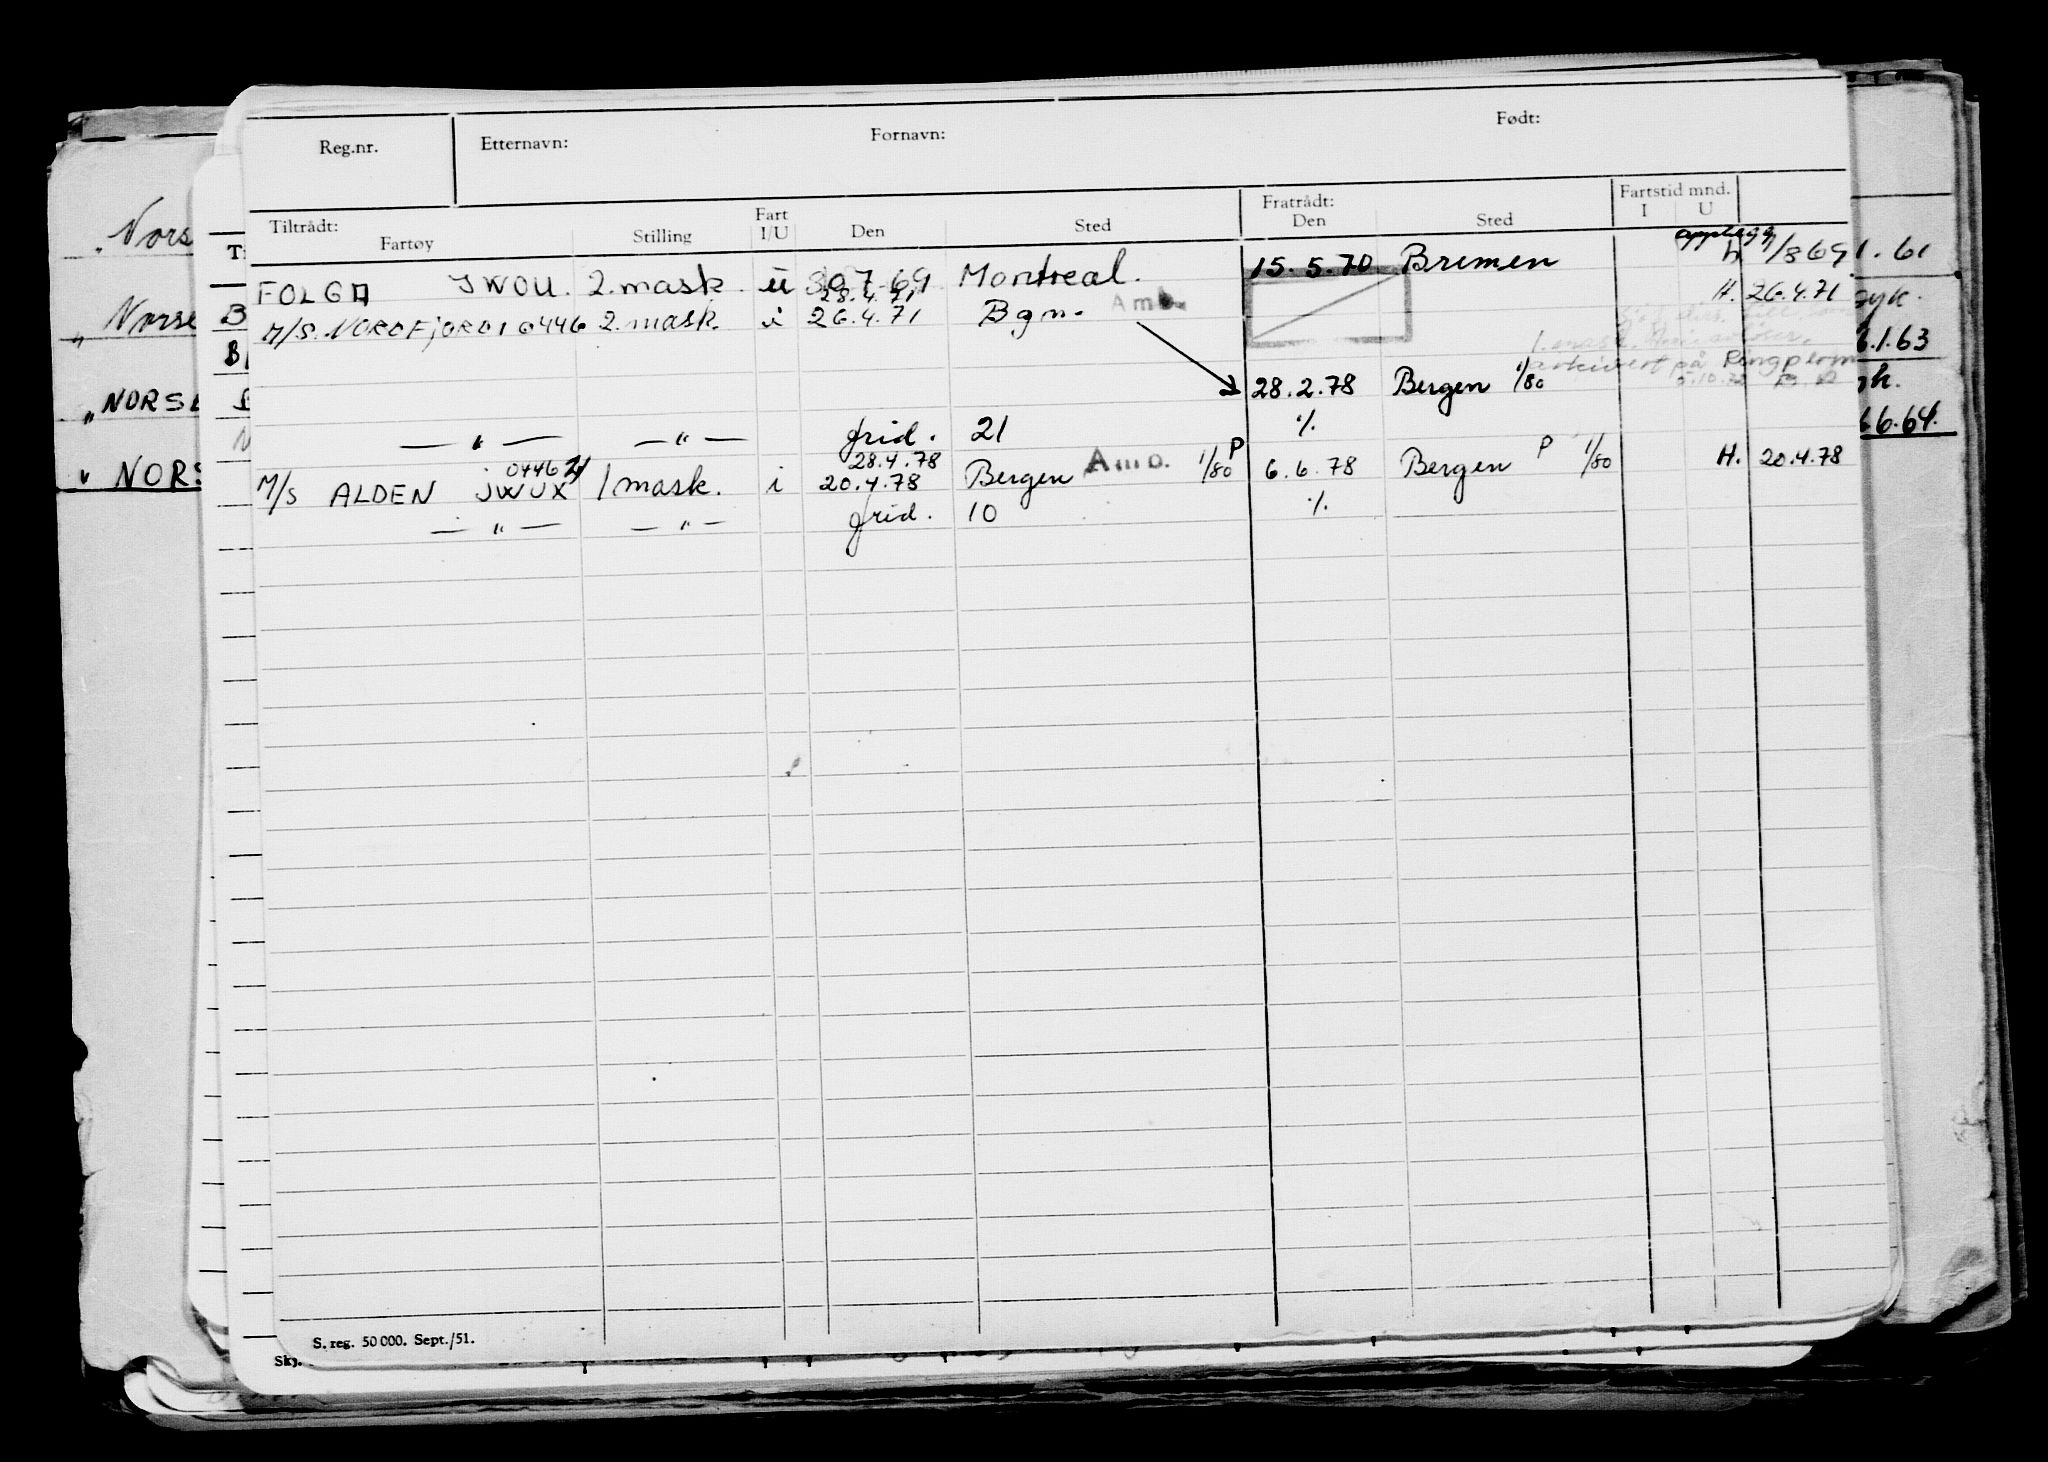 Reg.nr. Etternavn: Fornavn: Født:
Tiltrådt: Fartøy Stilling Fart I/U Den Sted Fratrådt: Den Sted Fartstid mnd. I U
FOLGA JWOU. 2.mask. u 30.7.69 Montreal. 15.5.70 Bremen h 1/8 69
28.4.71 Amb. H. 26.4.71
M/S. NORDFJORD I 0446 2.mask. i 26.4.71 Bgn.
arkivert på Ringperm
28.2.78 Bergen 1/80
— " — — " — frid. 21 %
0446 28.4.78 Amb. P
M/S ALDEN JWUX 1 mask. i 20.4.78 Bergen 1/80 6.6.78 Bergen P 1/80 H. 20.4.78
— " — — " — frid. 10 %
S. reg. 50 000. Sept./51.
Skj.
Nors
" Norse
" NORSE
" NORS
1.61
yk.
6.1.63
gk.
6.6.64.